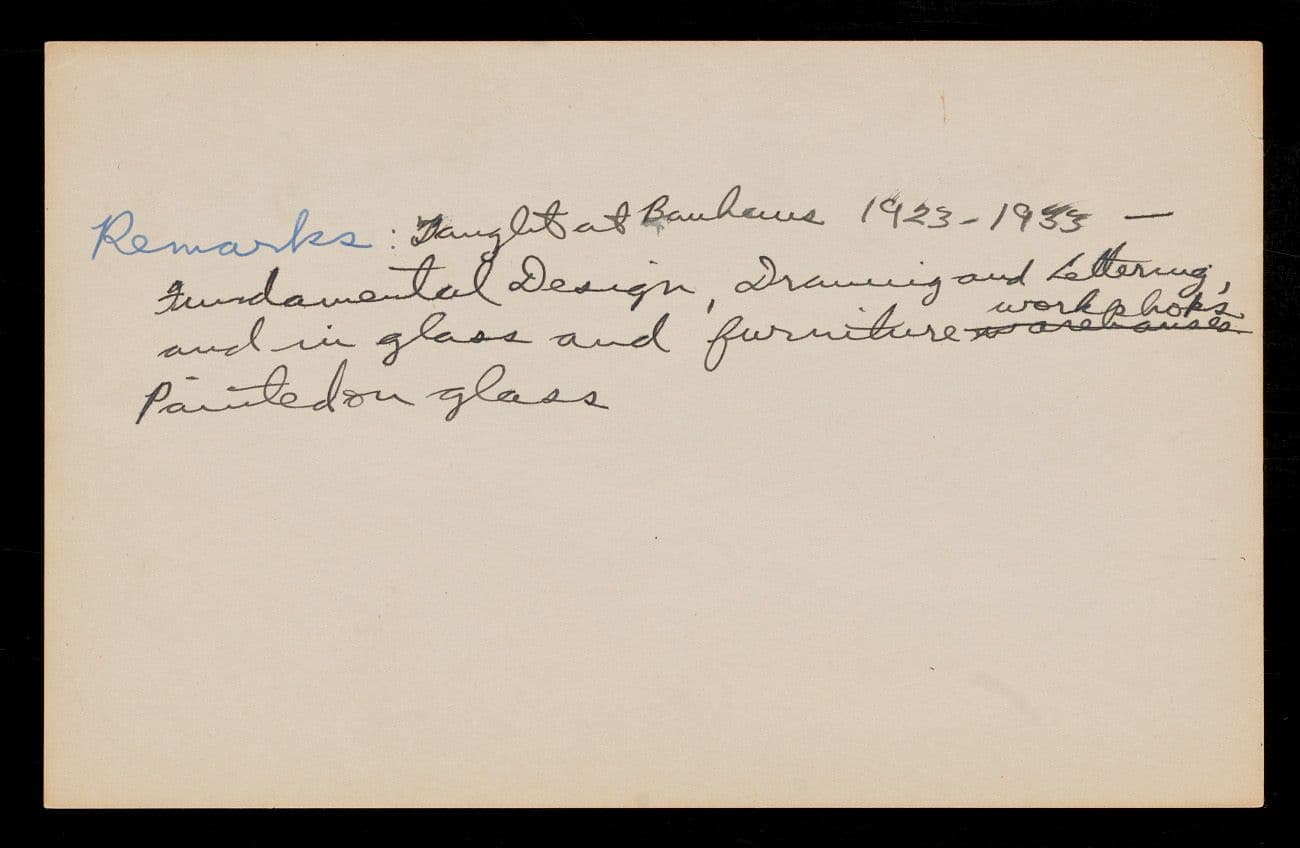 Remarks : Taught at Bauhaus 1923-1933 —
Fundamental Design, Drawing and Lettering,
workphops
and in glass and furniture warehouses
Painted on glass